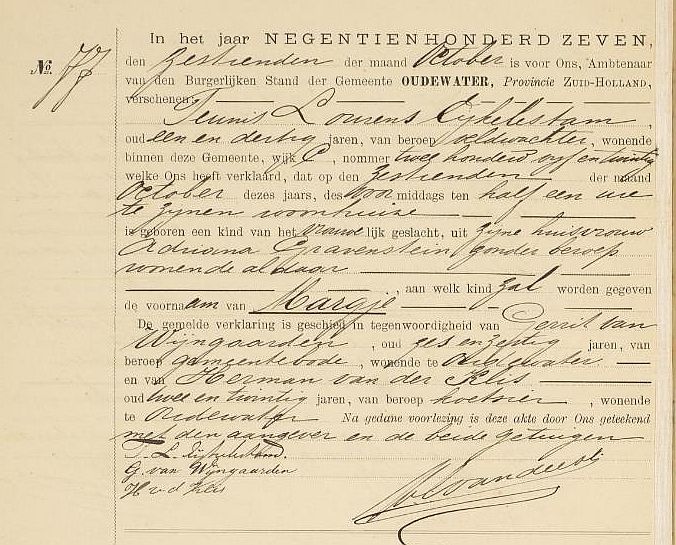 In het jaar NEGENTIENHONDERD ZEVEN,
No. 77 den Zestienden der maand October is voor Ons, Ambtenaar
van den Burgerlijken Stand der Gemeente OUDEWATER, Provincie ZUID-HOLLAND,
verschenen:
Teunis Lourens Eijkelestam,
oud een en dertig jaren, van beroep veldwachter, wonende
binnen deze Gemeente, wijk C, nommer twee honderd vijf en twintig
welke Ons heeft verklaard, dat op den Zestienden der maand
October dezes jaars, des voor middags ten half een ure
te zynen woonhuize
is geboren een kind van het vrouwelijk geslacht, uit zyne huisvrouw
Adriana Gravenstein, zonder beroep
wonende aldaar
, aan welk kind zal worden gegeven
de voornaam van Margje
De gemelde verklaring is geschied in tegenwoordigheid van Gerrit van
Wijngaarden, oud zes en zestig jaren, van
beroep gemeentebode, wonende te Oudewater.
en van Herman van der Klis
oud twee en twintig jaren, van beroep koetsier, wonende
te Oudewater Na gedane voorlezing is deze akte door Ons geteekend
met den aangever en de beide getuigen
T. L. Eijkelestam.
G. van Wijngaarden
H v d Klis